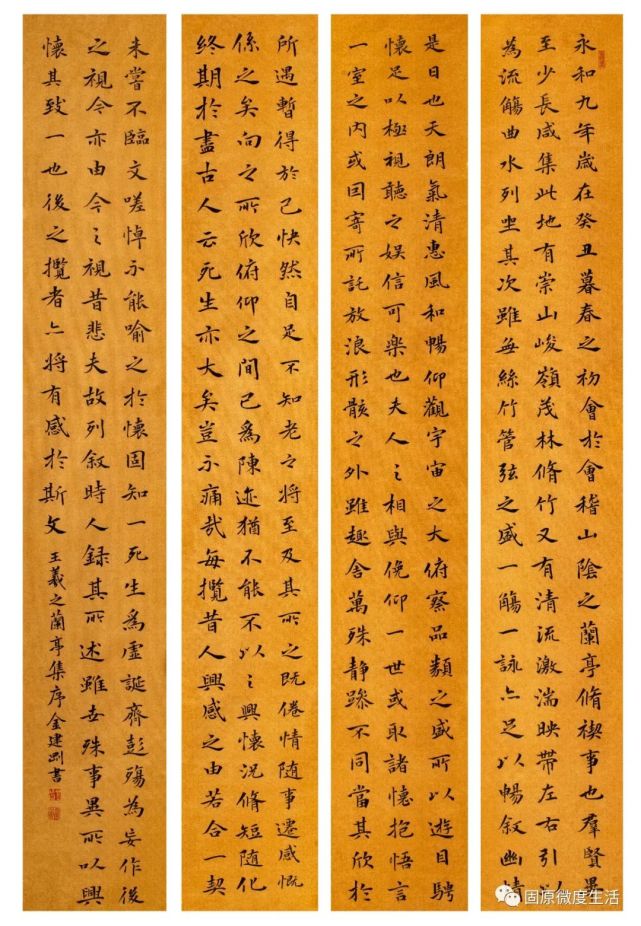 永和九年歲在癸丑暮春之初會於會稽山陰之蘭亭脩禊事也羣賢畢
至少長咸集此地有崇山峻嶺茂林脩竹又有清流激湍映帶左右引以
為流觴曲水列坐其次雖無絲竹管弦之盛一觴一詠亦足以暢敘幽情
是日也天朗氣清惠風和暢仰觀宇宙之大俯察品類之盛所以遊目騁
懷足以極視聽之娛信可樂也夫人之相與俛仰一世或取諸懷抱悟言
一室之內或因寄所託放浪形骸之外雖趣舍萬殊靜躁不同當其欣於
所遇暫得於己快然自足不知老之將至及其所之既倦情隨事遷感慨
係之矣向之所欣俯仰之間已為陳迹猶不能不以之興懷況脩短隨化
終期於盡古人云死生亦大矣豈不痛哉每攬昔人興感之由若合一契
未嘗不臨文嗟悼不能喻之於懷固知一死生為虛誕齊彭殤為妄作後
之視今亦由今之視昔悲夫故列敘時人錄其所述雖世殊事異所以興
懷其致一也後之攬者亦將有感於斯文 王羲之蘭亭集序金建剛書
固原微度生活